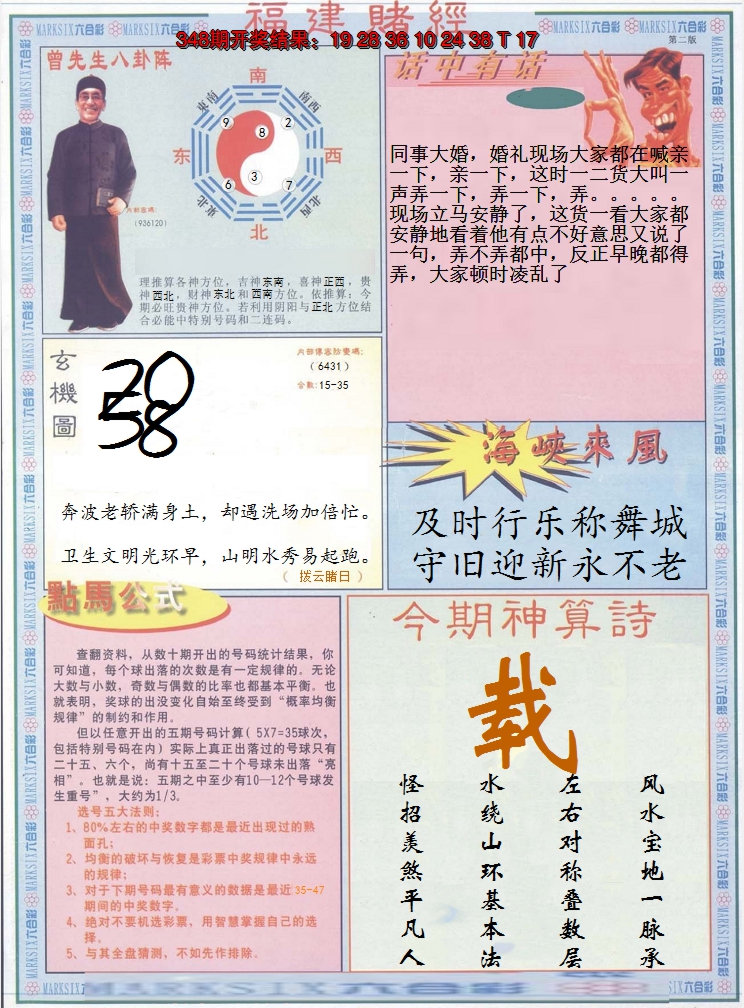 福建賭經
348期开奖结果：19 28 36 10 24 38 T 17
MARKSIX六合彩
第二版
曾先生八卦阵
南
东南
西南
9
8
2
东
西
6
3
7
东北
西北
北
内部密碼:
(936120)
理推算各神方位，吉神东南，喜神正西，贵
神西北，财神东北和西南方位。依推算：今
期必旺贵神方位。若利用阴阳与正北方位结
合必能中特别号码和二连码。
话中有话
同事大婚，婚礼现场大家都在喊亲
一下，亲一下，这时一二货大叫一
声弄一下，弄一下，弄。。。。。
现场立马安静了，这货一看大家都
安静地看着他有点不好意思又说了
一句，弄不弄都中，反正早晚都得
弄，大家顿时凌乱了
玄機圖
内部傳密防變碼:
(6431)
合数:15-35
20
58
奔波老轿满身土，却遇洗场加倍忙。
卫生文明光环早，山明水秀易起跑。
（ 拨云睹日 ）
海峽來風
及时行乐称舞城
守旧迎新永不老
點馬公式
查翻资料，从数十期开出的号码统计结果，你
可知道，每个球出落的次数是有一定规律的。无论
大数与小数，奇数与偶数的比率也都基本平衡。也
就表明，奖球的出没变化自始至终受到“概率均衡
规律”的制约和作用。
但以任意开出的五期号码计算( 5X7=35球次，
包括特别号码在内) 实际上真正出落过的号球只有
二十五、六个，尚有十五至二十个号球未出落“亮
相”。也就是说：五期之中至少有10—12个号球发
生重号”，大约为1/3。
选号五大法则:
1、80%左右的中奖数字都是最近出现过的熟
面孔;
2、均衡的破坏与恢复是彩票中奖规律中永远
的规律;
3、对于下期号码最有意义的数据是最近35-47
期间的中奖数字。
4、绝对不要机选彩票，用智慧掌握自己的选
择。
5、与其全盘猜测，不如先作排除。
今期神算詩
载
风水宝地一脉承
左右对称叠数层
水绕山环基本法
怪招羡煞平凡人
MARKSIX六合彩